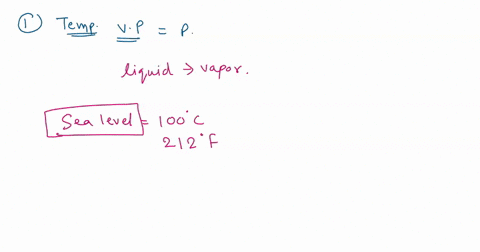 ① Temp. V.P = P.
liquid → vapor.
Sea level = 100°C
212°F